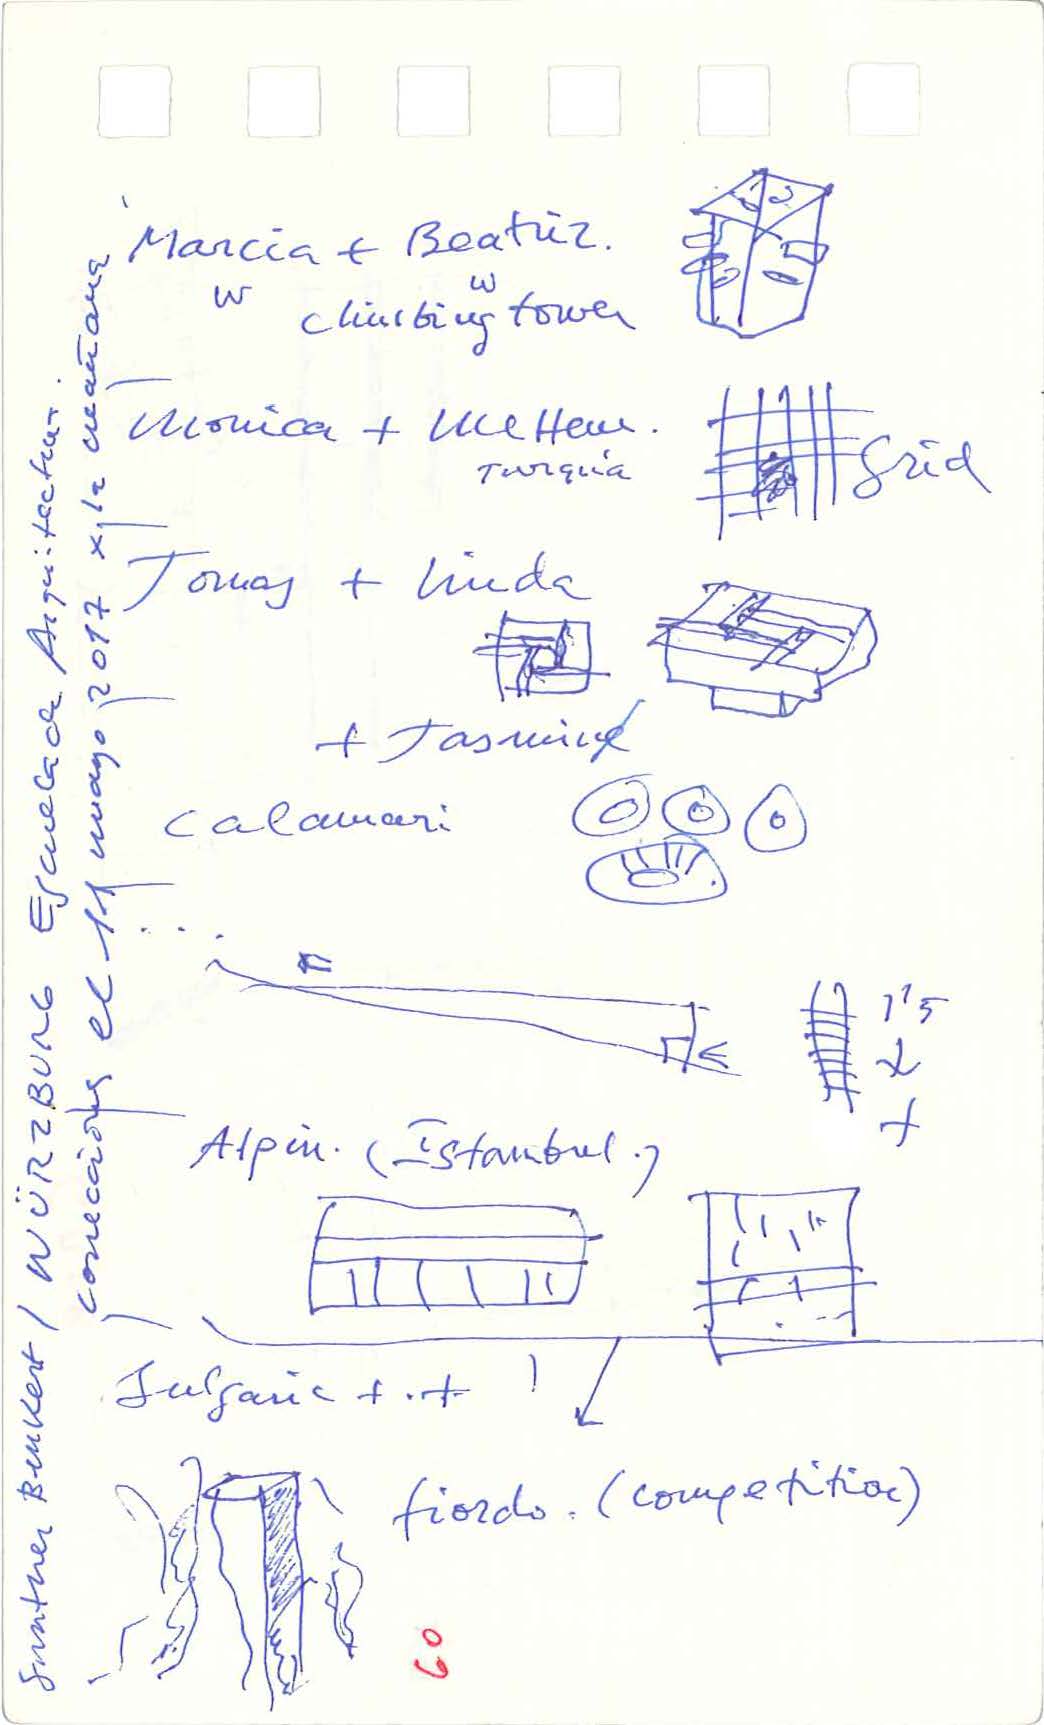 Marcia + Beatriz.
w w
climbing tower
Monica + Meltem.
Turquia
Grid
Tomas + Linda
+ Jasmine
calamari
. . .
1'5
x
+
Alpin. (Istambul.)
Bulgaria + . +
fiordo. (competition)
60
Gunther Benkert / WÜRZBURG Escuela de Arquitectur.
correcciones el 11 mayo 2017 x la mañana